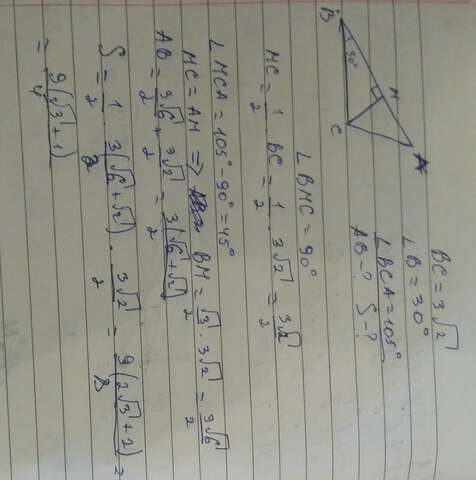 B
30°
H
A
C
BC = 3√2
∠B = 30°
∠BCA = 105°
AB - ? S - ?
∠BHC = 90°
HC = 1/2 · BC = 1/2 · 3√2 = 3√2/2
∠HCA = 105° - 90° = 45°
HC = AH => BH = √3/2 · 3√2 = 3√6/2
AB = 3√6/2 + 3√2/2 = 3(√6+√2)/2
S = 1/2 · 3(√6+√2)/2 · 3√2/2 = 9(2√3+2)/8 =
= 9(√3+1)/4